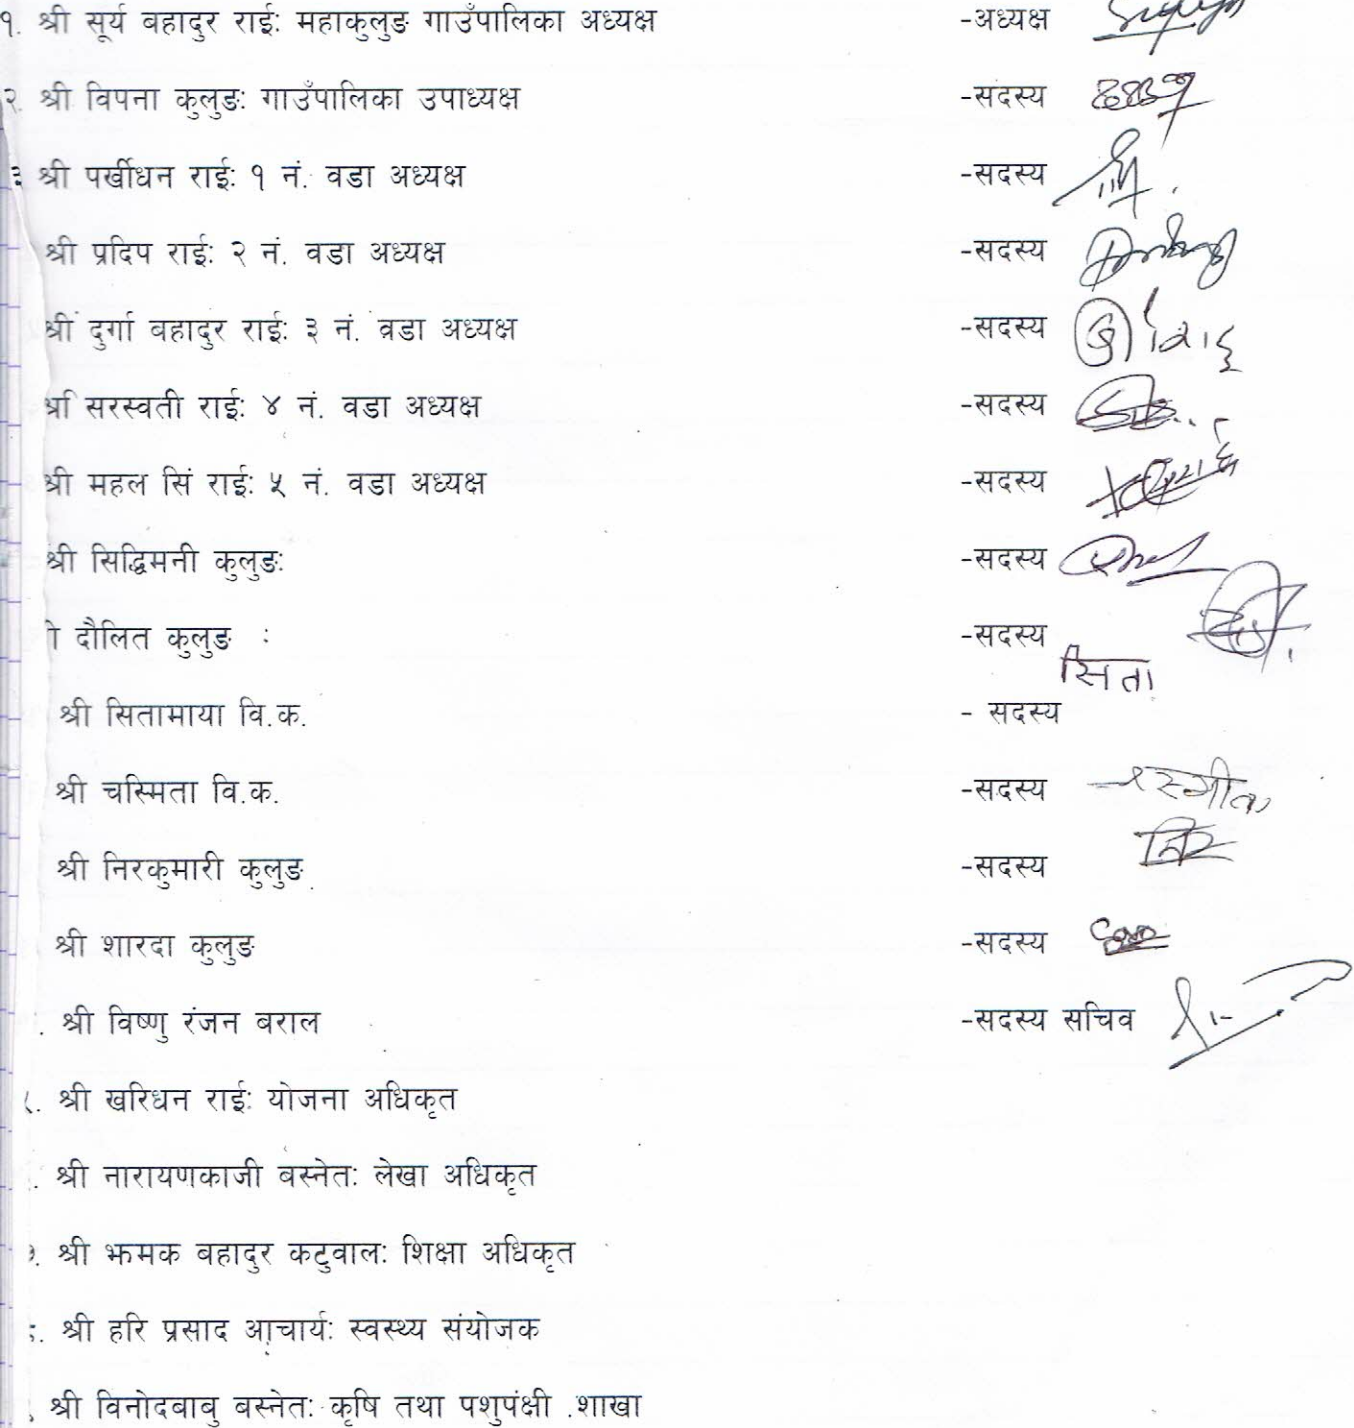 १. श्री सूर्य बहादुर राई: महाकुलुङ गाउँपालिका अध्यक्ष -अध्यक्ष
२ श्री विपना कुलुङ: गाउँपालिका उपाध्यक्ष -सदस्य
३ श्री पर्खीधन राई: १ नं. वडा अध्यक्ष -सदस्य
श्री प्रदिप राई: २ नं. वडा अध्यक्ष -सदस्य
श्री दुर्गा बहादुर राई: ३ नं. वडा अध्यक्ष -सदस्य
श्री सरस्वती राई: ४ नं. वडा अध्यक्ष -सदस्य
श्री महल सिं राई: ५ नं. वडा अध्यक्ष -सदस्य
श्री सिद्धिमनी कुलुङ: -सदस्य
दौलित कुलुङ : -सदस्य
सिता
श्री सितामाया वि.क. - सदस्य
श्री चस्मिता वि.क. -सदस्य
श्री निरकुमारी कुलुङ -सदस्य
श्री शारदा कुलुङ -सदस्य
. श्री विष्णु रंजन बराल -सदस्य सचिव
. श्री खरिधन राई: योजना अधिकृत
. श्री नारायणकाजी बस्नेत: लेखा अधिकृत
. श्री झमक बहादुर कटुवाल: शिक्षा अधिकृत
. श्री हरि प्रसाद आचार्य: स्वस्थ्य संयोजक
श्री विनोदबाबु बस्नेत: कृषि तथा पशुपंक्षी शाखा